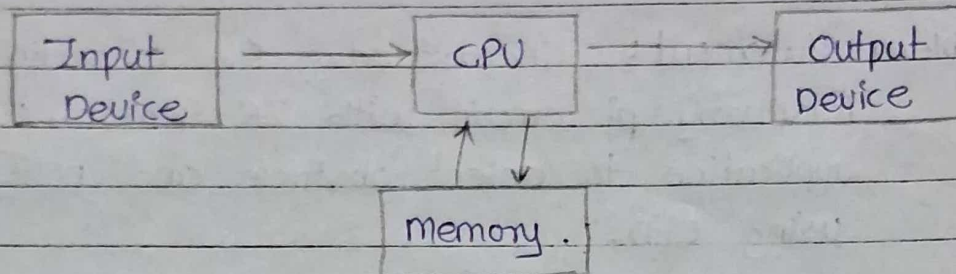 Input
Device
CPU
Output
Device
memory.